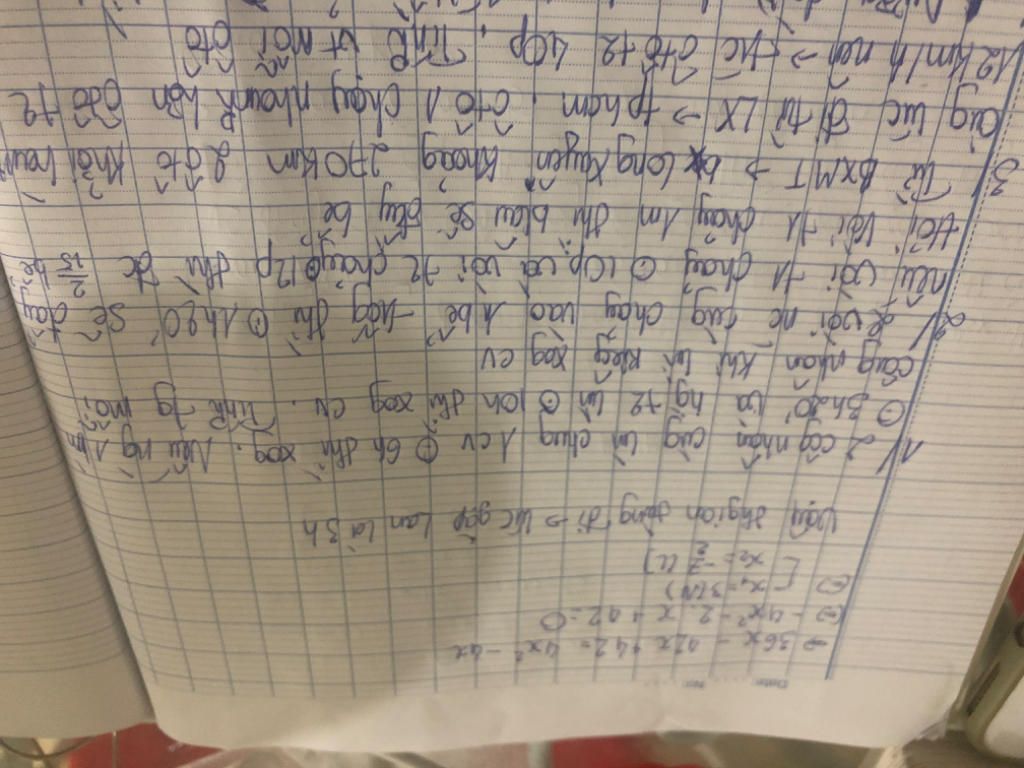 → 36x - 42x + 42 = 4x² - 4x
(=) - 4x² - 2.x + 42 = 0
(=) [ x₁ = 3 (N)
x₂ = -7/2 (L)
Vậy thgian dũng đi → lúc gặp Lan là 3h
1/ 2 côg nhân cùg là chug 1 cv ⊕ 6h thì xog. Nếu ng 1 là
⊙ 3h20' và ng t2 là ⊙ 10h thì xog cv. Tính tg mỗi
công nhân khi là riêg xog cv
2/ 2 vòi nc cùg chảy vào 1 bể khôg thì ⊙ 1h20' sẽ đầy
nếu vòi t1 chảy ⊙ 10p và vòi t2 chảy ⊙ 12p thì đc 2/15 bể
Hỏi vòi t1 chảy 1m thì blâu sẽ đầy bể
3/ Từ BXMT → Long Xuyên khoảg 270km 2 ôtô khởi hành
cùg lúc đi từ LX → tphcm, ôtô 1 chạy nhanh hơn ôtô t2
12km/h nên → tốc ôtô t2 40p. Tính vt mỗi ôtô